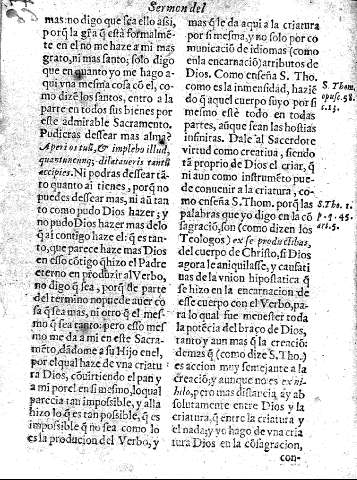 Sermon del
mas: no digo que sea ello assi,
porq̃ la gr̃a q̃ està formalmẽ-
te en el no me haze a mi mas
grato, ni mas santo; solo digo
que en quanto yo me hago a-
qui vna mesma cosa cõ el, co-
mo dizẽ los santos, entro a la
parte en todos sus bienes por
este admirable Sacramento.
Pudieras dessear mas alma?
Aperi os tuũ, & implebo illud,
quantuncunq; dilataueris tantũ
accipies. Ni podras dessear tã-
to quanto ai tienes, porq̃ no
puedes dessear mas, ni aũ tan
to como pudo Dios hazer; y
no pudo Dios hazer mas delo
q̃ ai contigo haze el: q̃ es tan-
to, que parece haze mas Dios
en esso cõtigo q̃ hizo el Padre
eterno en produzir al Verbo,
no digo q̃ sea, porq̃ de parte
del termino no puede auer co
sa q̃ sea mas, ni otro q̃ el mes-
mo q̃ sea tanto: pero esso mes
mo me da a mi en este Sacra-
mẽto, dãdome a su Hijo en el,
por el qual haze como vna criatu
ra Dios, cõuirtiendo el pan y
a mi por el en si mesmo, lo qual
parecia tan impossible, y alla
hizo lo q̃ es tan possible, q̃ es
impossible q̃ no sea como lo
es la producion del Verbo, y
mas q̃ le da aqui a la criatura
por si mesma, y no solo por co
municaciõ de idiomas (como
en la encarnaciõ) atributos de
Dios. Como enseña S. Tho.
como es la inmensidad, haziẽ
do q̃ aquel cuerpo suyo por si
mesmo estè todo en todas
partes, aũque sean las hostias
infinitas. Dale al Sacerdote
virtud como creatiua, siendo
tã proprio de Dios el criar, q̃
ni aun como instrumẽto pue-
de conuenir a la criatura, co-
mo enseña S. Thom. porq̃ las
palabras que yo digo en la cõ
sagraciõ, son (como dizen los
Teologos) ex se productiuas,
del cuerpo de Christo, si Dios
agora le aniquilasse, y causati
uas de la vnion hipostatica q̃
se hizo en la encarnacion de
esse cuerpo con el Verbo, pa-
ra lo qual fue menester toda
la potẽcia del braço de Dios,
tanto y aun mas q̃ la creaciõ:
demas q̃ (como dize S. Tho.)
es accion muy semejante a la
creaciõ; y aunque no es ex ni-
hilo, pero mas distãcia, ay ab
solutamente entre Dios y la
criatura, q̃ entre la criatura y
el nada; y yo hago de vna cria
tura Dios en la cõsagracion,
con-
S. Thom.
opusc. 58.
c. 13.
S. Tho. 1.
p. q. 45.
art. 5.